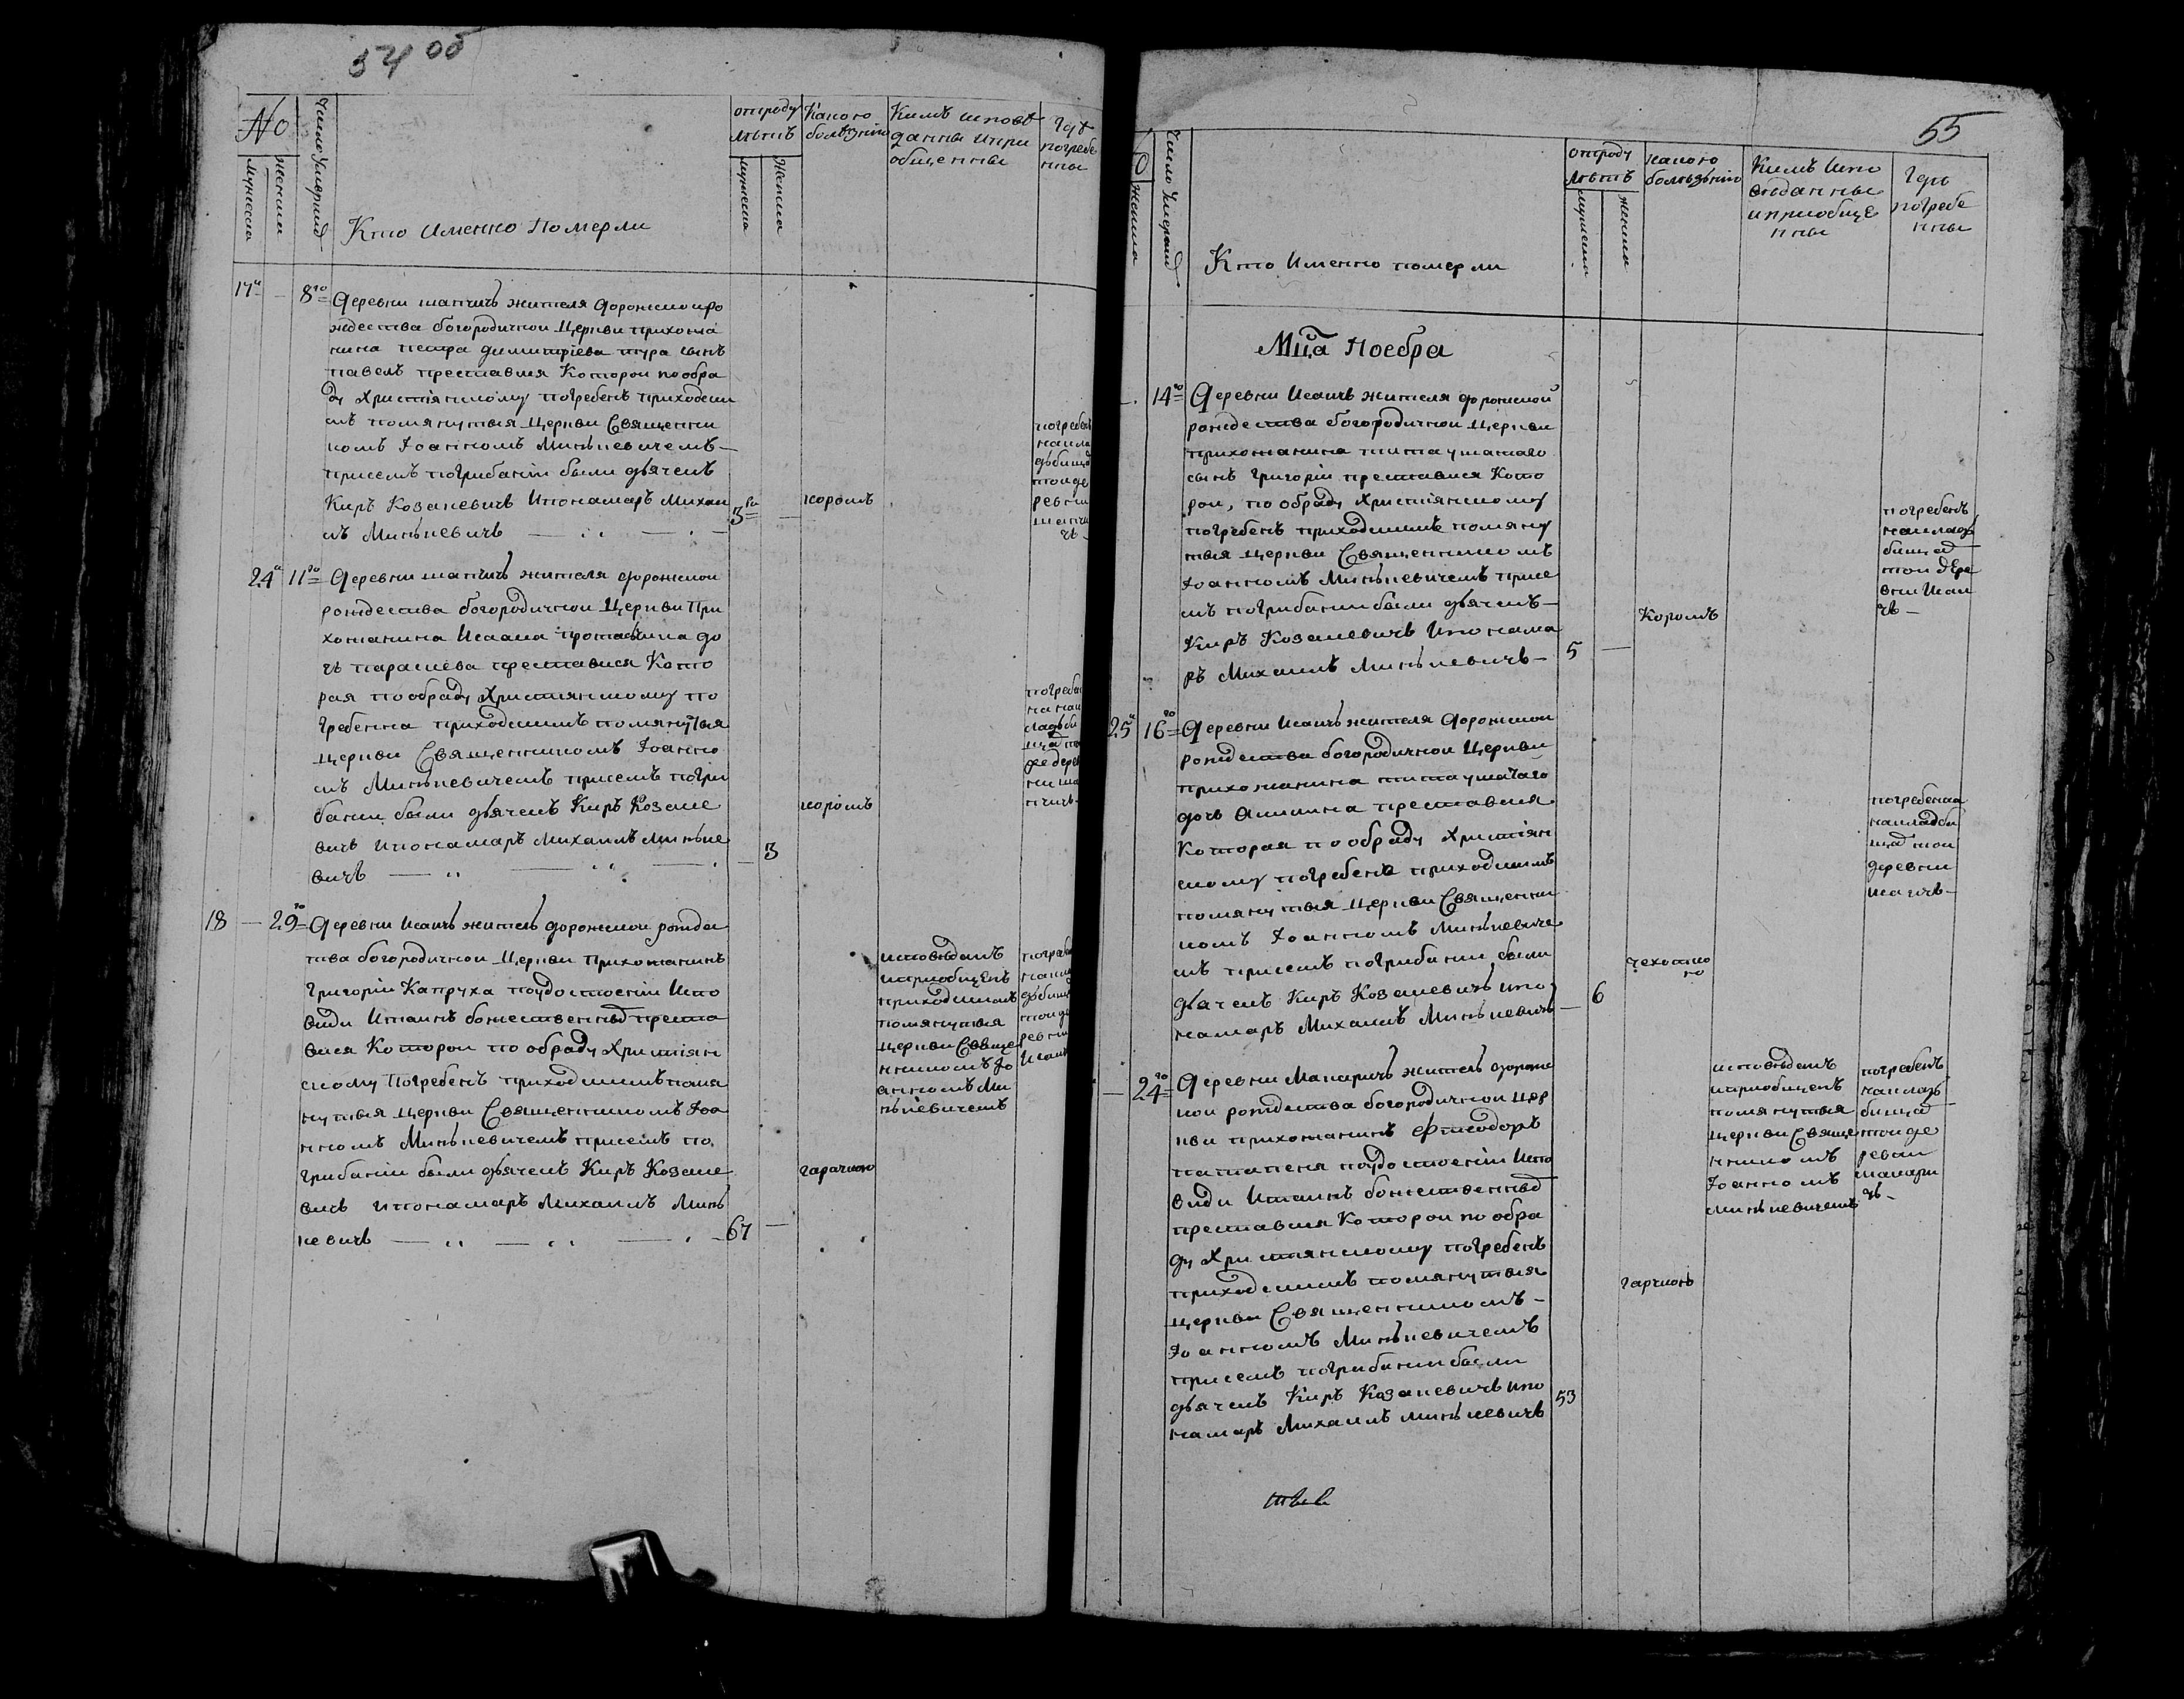 54 об
No
мужеска
женска
Число Умершихъ
Кто Именно Померли
отроду
лѣтъ
мужеска
Женска
Какою
болѣзнію
Кимъ исповѣ
данны ипри
общенны
Гдѣ
погребе
нны
17й
8го
Деревни шатичъ жителя дорожского ро
ждества богородичной Церкви прихожа
нина петра димитріева тура сынъ
павелъ преставися Которои пообра
ду Христіянскому погребенъ приходски
мъ помянутыя Церкви Священни
комъ Іоанномъ Минкевичемъ —
присемъ погрибаніи были дьячекъ
Киръ Козакевичъ Ипонамаръ Михаи
лъ Минкевичъ
3
коромъ
погребенъ
накла
дьбищѣ
тоиде
ревни
шатич
чъ
24а
11го
Деревни шатичъ жителя дорожскои
рождества богородичнои Церкви При
хожанина Исаака до
чъ параскева преставися Кото
рая пообраду Христіянскому по
гребенна приходскимъ помянутыя
церкви Священникомъ Іоанно
мъ Минкевичемъ присемъ погри
бании были дьячекъ Киръ Козаке
вичъ ипонамаръ Михаилъ Минке
вичъ
3
коромъ
18
29го
Деревни Исаичъ житель дорожскои рожде
тва богородичнои Церкви Прихожанинъ
Григоріи Капруха поудостоеніи Испо
веди Итаинъ божественныхъ преста
вися Которои по обраду Христіян
скому Погребенъ приходскимъ помя
нутыя церкви Священникомъ Іоа
нномъ Минкевичемъ присемъ по
грибаніи были дьячекъ Киръ Козаке
вичъ ипонамаръ Михаилъ Минь
кевичъ
67
гарачкою
исповѣданъ
иприобщенъ
приходскимъ
помянутыя
церкви Свяще
нникомъ Іо
анномъ Ми
нькевичемъ
55
женска
Число Умершихъ
Кто Именно померли
отроду
лѣтъ
мужеска
женска
какою
болѣзнію
Кимъ Испо
вѣданны
иприобще
нны
Гдѣ
погребе
нны
Мца Ноебра
14го
Деревни Исаичъ жителя дорожскои
рождества богородичнои Церкви
прихожанина тита ушатаго
сынъ григоріи преставися Кото
рои, по обраду Христіянскому
погребенъ приходскимъ помяну
тыя церкви Священникомъ
Іоанномъ Минкевичемъ присе
мъ погрибании были дьячекъ —
Киръ Козакевичъ Ипонама
ръ Михаилъ Минкевичъ —
5
Коромъ
погребенъ
накладь
бищѣ
тои дере
вни Исаи
чъ —
25а
16го
Деревни Исаичъ жителя дорожскои
рождества богородичнои Церкви
прихожанина тита ушатаго
дочъ Акилина преставися
Которая по обраду Христіян
скому погребенъ приходскимъ
помянутыя церкви Священни
комъ Іоанномъ Минкевиче
мъ присемъ погрибании были
дьячекъ Киръ Козакевичъ ипо
намаръ Михаилъ Минкевичъ
6
чехотко
ю
погребенна
накладби
щѣ тои
деревни
исаичъ —
24го
Деревни Макаричъ житель дорожс
кои рождества богородичнои цер
кви прихожанинъ Фтеодоръ
патапеня поудостоеніи Испо
веди Итаинъ божественныхъ
преставися Которои по обра
ду Христянскому погребенъ
приходскимъ помянутыя
церкви Священникомъ —
Іоанномъ Минкевичемъ
присемъ погрибании были
дьячекъ Киръ Козакевичъ ипо
намаръ Михаилъ Минкевичъ
53
гарчкою
исповѣданъ
иприобщенъ
помянутыя
церкви Свяще
нникомъ
Іоанномъ
Минкевичемъ
погребенъ
накладь
бищѣ
тоиде
ревни
макари
чъ —